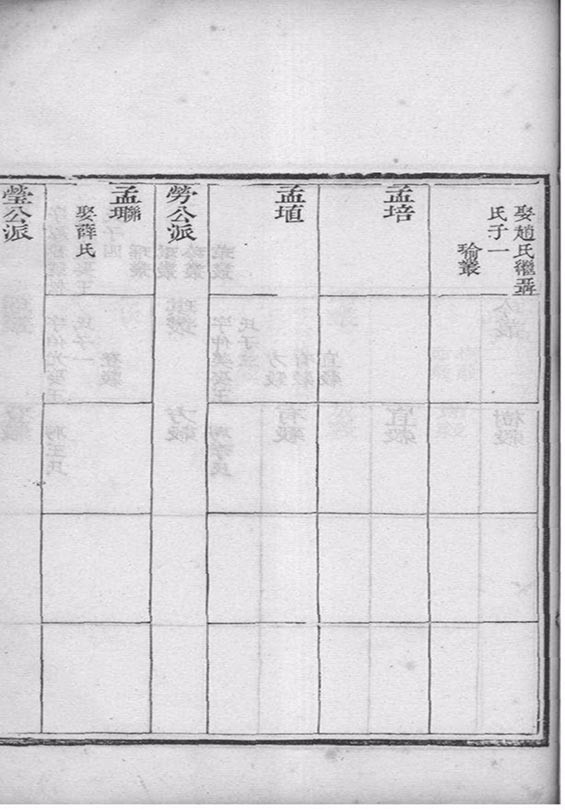 娶趙氏繼聶
氏子一
瑜叢
孟培
孟埴
勞公派
孟聯
娶薛氏
瑩公派